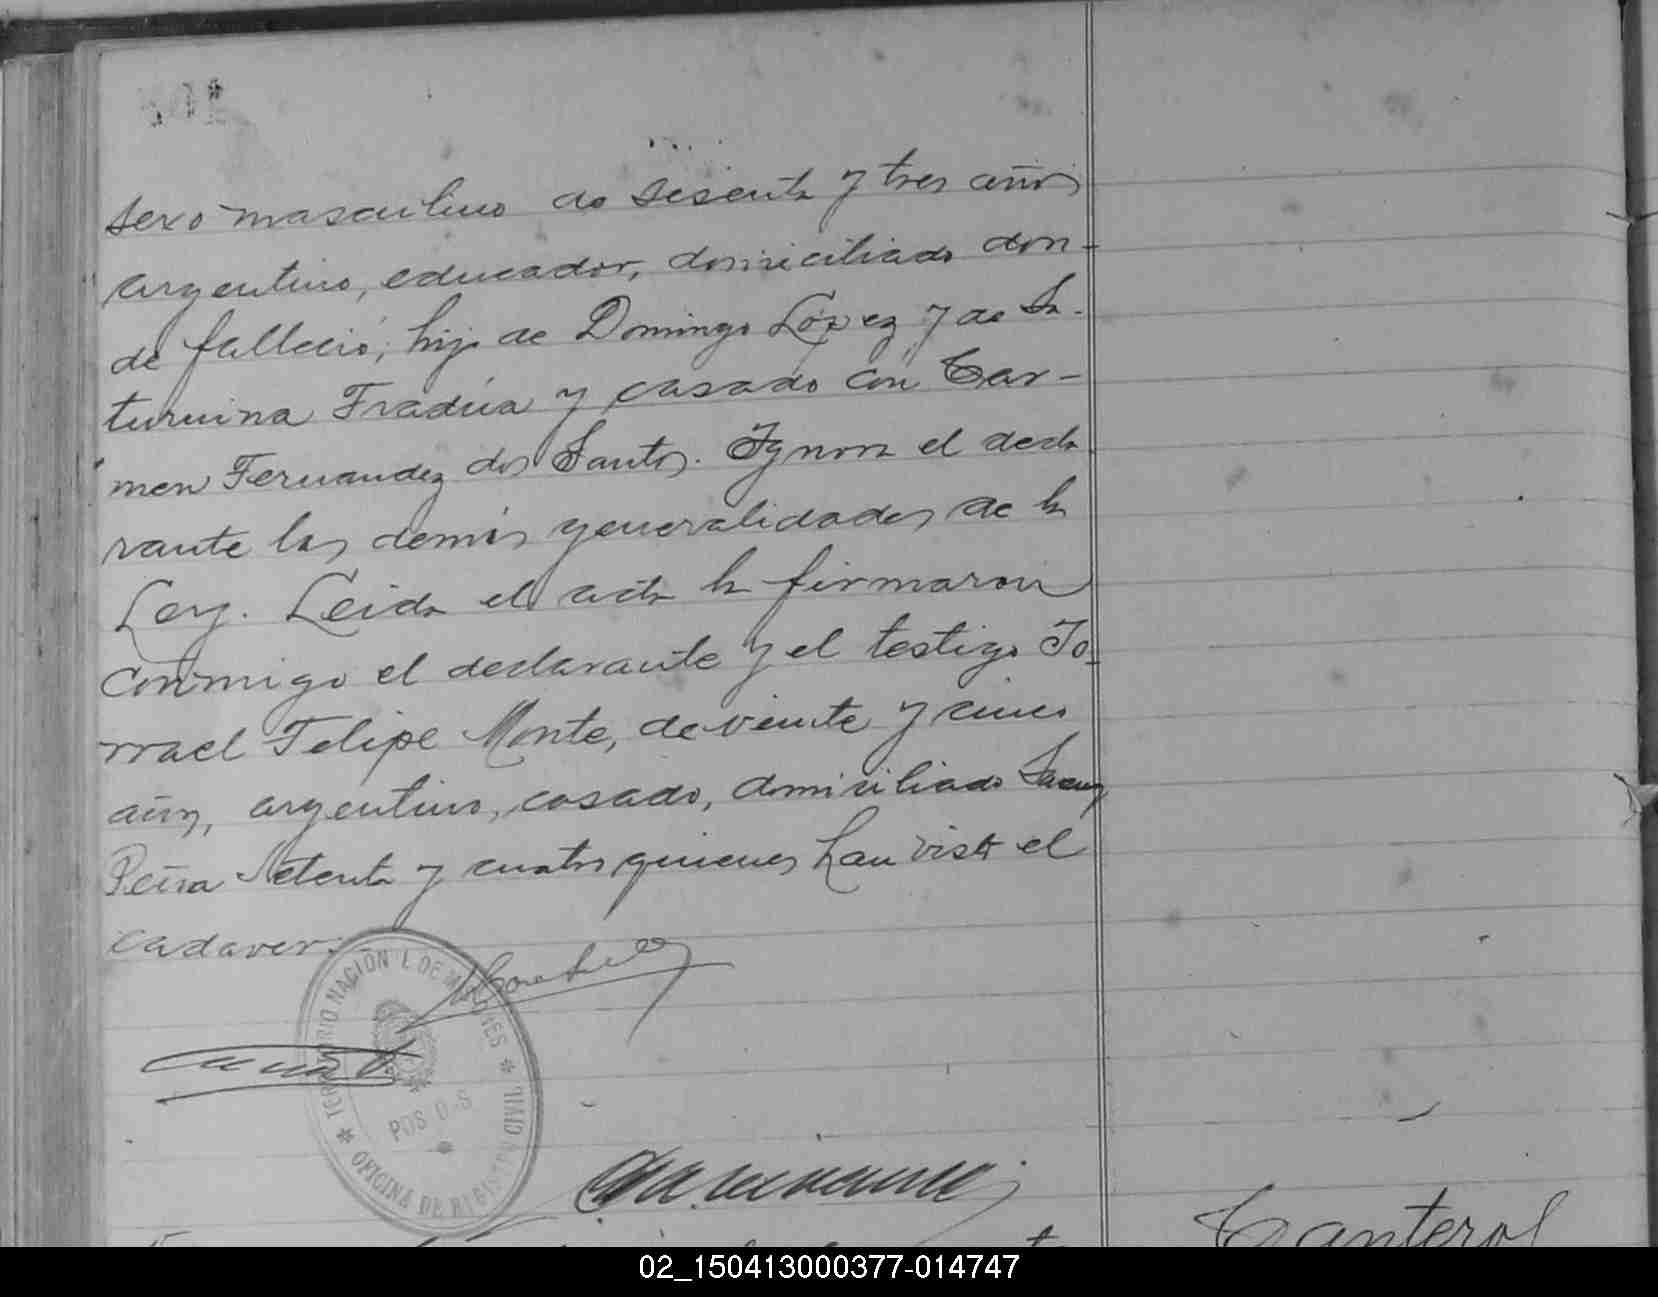 sexo masculino de sesenta y tres años
argentino, educador, domiciliado don-
de falleció, hijo de Domingo López y de Sa-
turnina Fradúa y casado con Car-
men Fernandez dos Santos. Ignora el decla
rante las demás generalidades de la
Ley. Leida el acta la firmaron
conmigo el declarante y el testigo Is-
rrael Felipe Monte, de veinte y cinco
años, argentino, casado, domiciliado Saenz
Peña setenta y cuatro quienes han visto el
cadaver.
TERRITORIO NACIONAL DE MISIONES
POSADAS
OFICINA DE REGISTRO CIVIL
Canterol
02_150413000377-014747